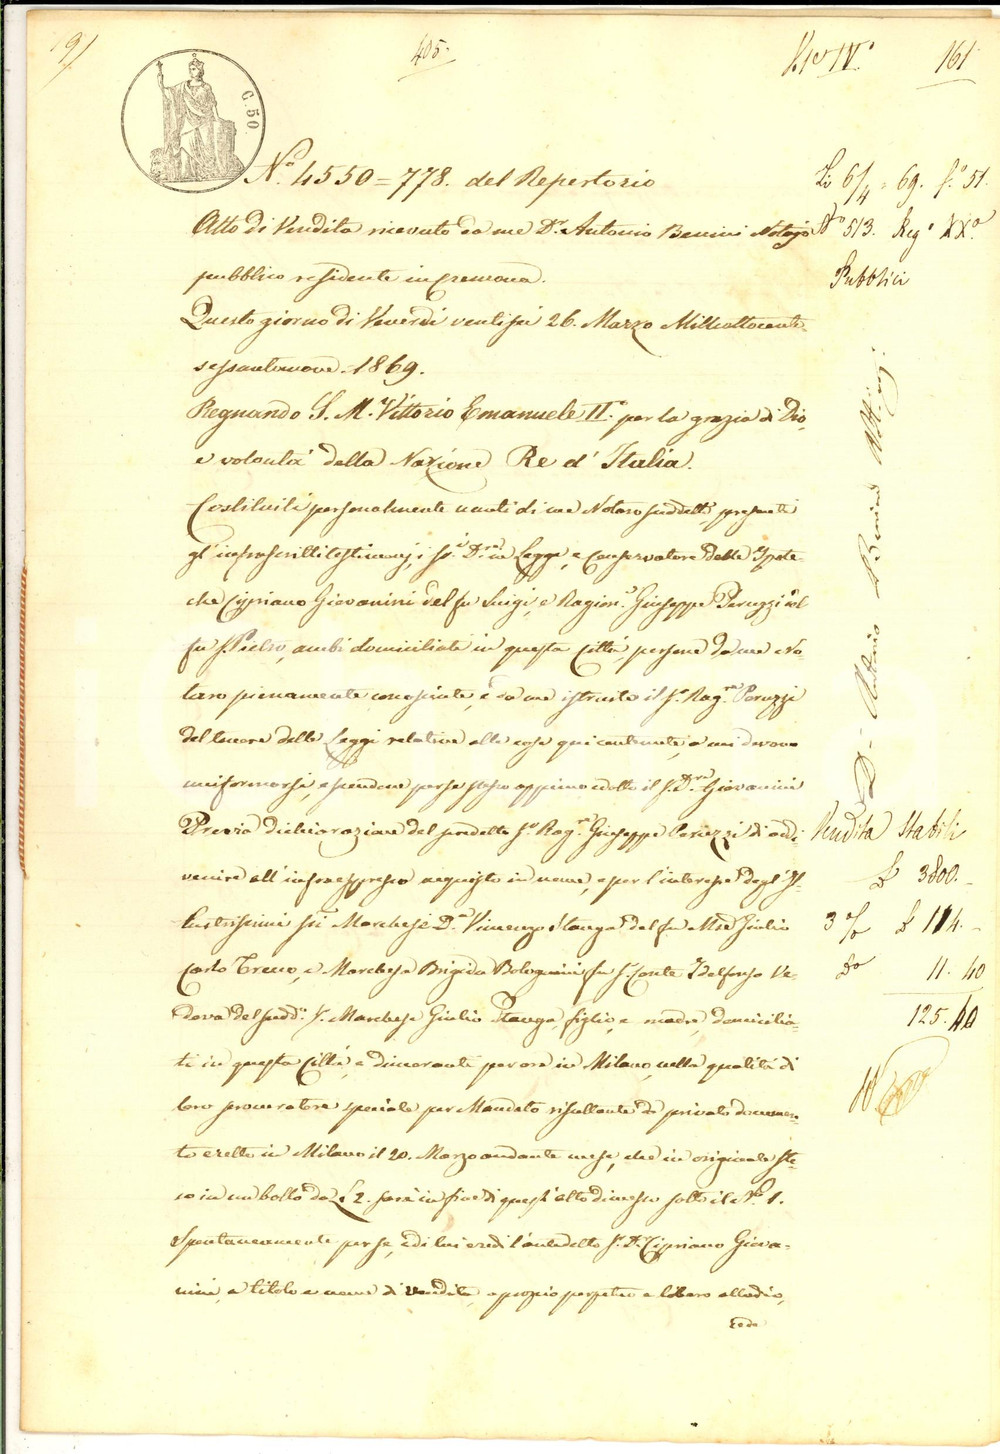 191
405.
161
C. 50
N.° 4550 = 778. del Repertorio
Atto di Vendita ricevuto da me D.r Antonio Benini Notajo
pubblico residente in Cremona.
Questo giorno di Venerdì ventisei 26. Marzo Milleottocento
sessantanove. 1869.
Regnando S. M. Vittorio Emanuele II.° per la grazia di Dio,
e volontà della Nazione Re d'Italia.
Costituiti personalmente nanti di me Notaro suddetto presenti
gl'infrascritti testimonj, i Sr.i D.r in Legge, e Conservatore delle Ipote-
che Cipriano Giovanini del fu Luigi, e Ragion.e Giuseppe Peruzzi del
fu S. Pietro, ambi domiciliati in questa Città, persone da me No-
taro pienamente conosciute, e da me istruito il S.r Rag.re Peruzzi
del tenore delle Leggi relative alle cose qui contenute, a cui devono
uniformarsi, essendone per se stesso appieno edotto il S. D.re Giovanini
Previa dichiarazione del predetto S.r Rag.re Giuseppe Peruzzi di addi-
venire all'infraespresso acquisto in nome, e per l'interesse degl'Il-
lustrissimi Sri Marchese D.n Vincenzo Stanga del fu Mse Giulio
Carlo Treno, e Marchesa Brigida Bolognini fu S.r Conte Idelfonso Ve-
dova del sudd.° S.r Marchese Giulio Stanga, figlio, e madre, domicilia-
ti in questa Città, e dimoranti per ora in Milano, nella qualità di
loro procuratore speciale per Mandato risultante da privato documen-
to eretto in Milano il 20. Marzo andante mese, che in originale ste-
so in un bollo da £ 2. sarà in fine di quest'atto dimesso sotto il N.° 1.
Spontaneamente per se, e di lui eredi l'anzidetto S.r D.r Cipriano Giova-
nini, a titolo e nome di vendita, a proprio perpetuo e libero allodio,
Li 6/4 = 69. f.° 51.
N.° 513. Reg.° XX.°
Pubblici
D.r Antonio Benini
Vendita Stabili
£ 3800.-
3 % £ 114.-
D.° 11. 40
125. 40